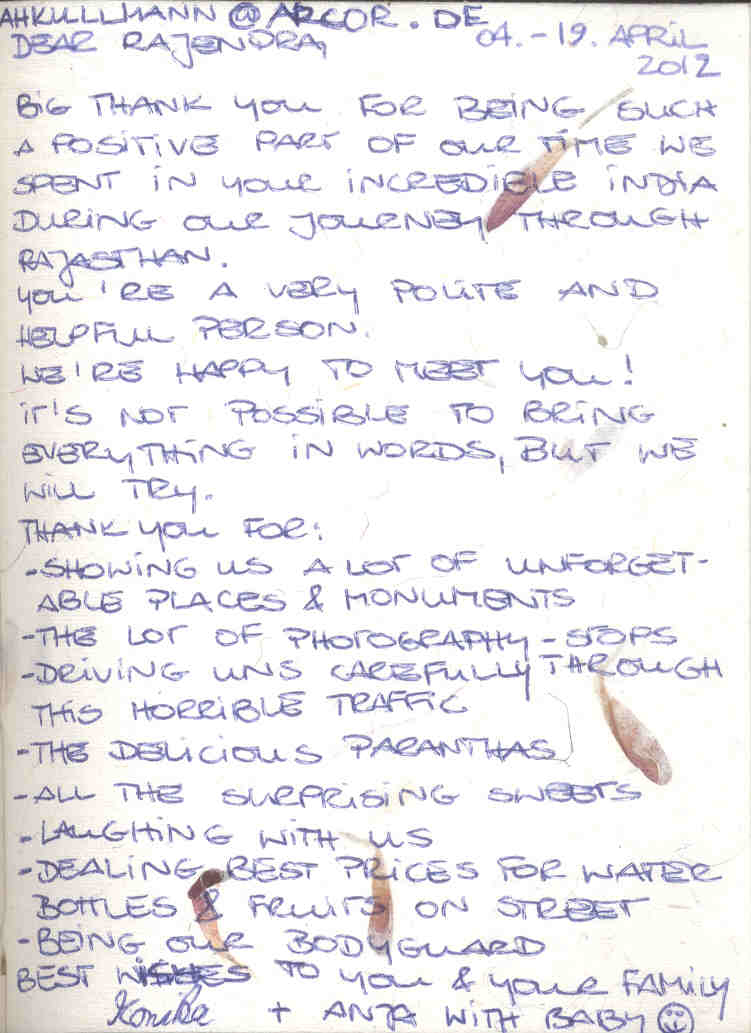 AHKULLMANN@ARCOR.DE
DEAR RAJENDRA,
04.-19. APRIL
2012
BIG THANK you FOR BEING SUCH
A POSITIVE PART OF OUR TIME WE
SPENT IN YOUR INCREDIBLE INDIA
DURING OUR JOURNEY THROUGH
RAJASTHAN.
YOU'RE A VERY POLITE AND
HELPFULL PERSON.
WE'RE HAPPY TO MEET YOU!
IT'S NOT POSSIBLE TO BRING
EVERYTHING IN WORDS, BUT WE
WILL TRY.
THANK YOU FOR:
-SHOWING US A LOT OF UNFORGET-
ABLE PLACES & MONUMENTS
-THE LOT OF PHOTOGRAPHY-STOPS
-DRIVING UNS CAREFULLY THROUGH
THIS HORRIBLE TRAFFIC
-THE DELICIOUS PARANTHAS
-ALL THE SURPRISING SWEETS
-LAUGHING WITH US
-DEALING BEST PRICES FOR WATER
BOTTLES & FRUITS ON STREET
-BEING OUR BODYGUARD
BEST WISHES TO YOU & YOUR FAMILY
+ ANJA WITH BABY